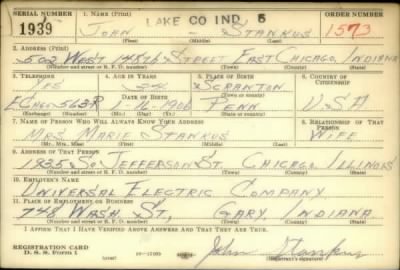 SERIAL NUMBER 1. NAME (Print) LAKE CO IND. 5 ORDER NUMBER
1939 JOHN - STANKUS 1573
(First) (Middle) (Last)
2. ADDRESS (Print)
502 WEST 148TH STREET EAST CHICAGO, INDIANA
(Number and street or R. F. D. number) (Town) (County) (State)
3. TELEPHONE 4. AGE IN YEARS 5. PLACE OF BIRTH 6. COUNTRY OF CITIZENSHIP
YES SCRANTON
DATE OF BIRTH (Town or county)
E. CHGO 563-R 1-16-1906 PENN U.S.A
(Exchange) (Number) (Mo.) (Day) (Yr.) (State or country)
7. NAME OF PERSON WHO WILL ALWAYS KNOW YOUR ADDRESS 8. RELATIONSHIP OF THAT PERSON
MRS MARIE STANKUS WIFE
(Mr., Mrs., Miss) (First) (Middle) (Last)
9. ADDRESS OF THAT PERSON
1835 SO. JEFFERSON ST. CHICAGO ILLINOIS
(Number and street or R. F. D. number) (Town) (County) (State)
10. EMPLOYER'S NAME
UNIVERSAL ELECTRIC COMPANY
11. PLACE OF EMPLOYMENT OR BUSINESS
748 WASH. ST, GARY INDIANA
(Number and street or R. F. D. number) (Town) (County) (State)
I AFFIRM THAT I HAVE VERIFIED ABOVE ANSWERS AND THAT THEY ARE TRUE.
REGISTRATION CARD
D. S. S. Form 1 (over) John Stankus
(Registrant's signature)